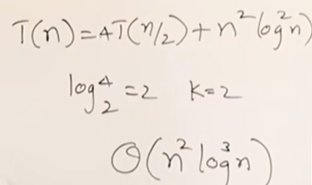 T(n) = 4T(n/2) + n² log² n)
log₂⁴ = 2 K = 2
Θ(n² log³ n)